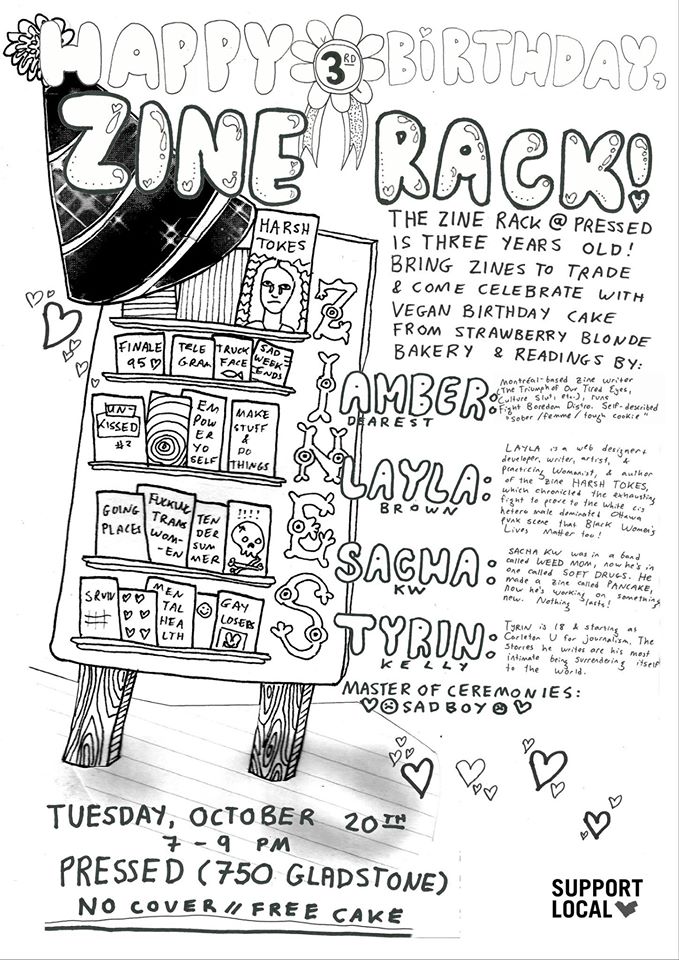 HAPPY 3RD BIRTHDAY,
ZINE RACK!
THE ZINE RACK @ PRESSED
IS THREE YEARS OLD!
BRING ZINES TO TRADE
& COME CELEBRATE WITH
VEGAN BIRTHDAY CAKE
FROM STRAWBERRY BLONDE
BAKERY & READINGS BY:
AMBER:
DEAREST
Montréal-based zine writer
(The Triumph of Our Tired Eyes,
Culture Slut, etc.), runs
Fight Boredom Distro. Self-described
"sober/femme/tough cookie"
LAYLA:
BROWN
LAYLA is a web designer &
developer, writer, artist, &
practicing womanist, & author
of the zine HARSH TOKES,
which chronicled the exhausting
fight to prove to the white cis
hetero male dominated Ottawa
punk scene that Black Women's
Lives Matter too!
SACHA:
KW
SACHA KW was in a band
called WEED MOM, now he's in
one called SOFT DRUGS. He
made a zine called PANCAKE,
now he's working on something
new. Nothing lasts!
TYRIN:
KELLY
TYRIN is 18 & starting at
Carleton U for journalism. The
stories he writes are his most
intimate being surrendering itself
to the world.
MASTER OF CEREMONIES:
♡☹SADBOY☹♡
HARSH
TOKES
FINALE
95 ♡
TELE
GRAM
TRUCK
FACE
SAD
WEEK
ENDS
UN-
KISSED
#2
EM
POW
ER
YO
SELF
MAKE
STUFF
& DO
THINGS
GOING
PLACES
FUCKIN
TRANS
WOM-
-EN
TEN
DER
SUM
MER
!!!!
SRVIV
MEN
TAL
HEA
LTH
GAY
LOSERS
ZINES
TUESDAY, OCTOBER 20TH
7 - 9 PM
PRESSED (750 GLADSTONE)
NO COVER // FREE CAKE
SUPPORT
LOCAL